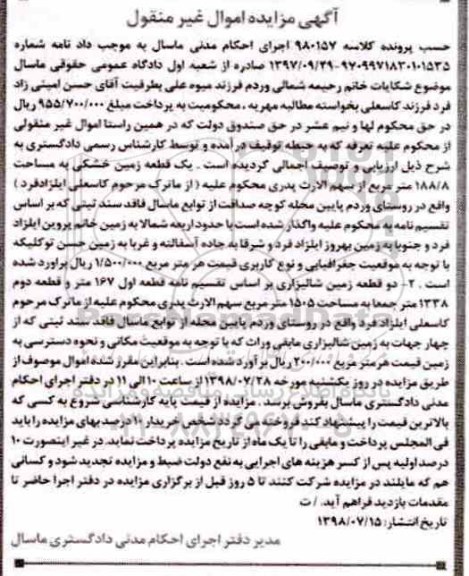 آگهی مزایده اموال غیر منقول
حسب پرونده کلاسه ۹۸۰۱۵۷ اجرای احکام مدنی ماسال به موجب داد نامه شماره
۹۷۰۹۹۷۱۸۳۰۱۰۱۵۳۵-۱۳۹۷/۰۹/۲۹ صادره از شعبه اول دادگاه عمومی حقوقی ماسال
موضوع شکایات خانم رحیمه شمالی وردم فرزند میوه علی بطرفیت آقای حسن امیتی زاد
فرد فرزند کاسعلی بخواسته مطالبه مهریه ، محکومیت به پرداخت مبلغ ۹۵۵/۷۰۰/۰۰۰ ریال
در حق محکوم لها و نیم عشر در حق صندوق دولت که در همین راستا اموال غیر منقولی
از محکوم علیه تعرفه که به حیطه توقیف در آمده و توسط کارشناس رسمی دادگستری به
شرح ذیل ارزیابی و توصیف اجمالی گردیده است . یک قطعه زمین خشکی به مساحت
۱۸۸/۸ متر مربع از سهم الارث پدری محکوم علیه ( از ماترک مرحوم کاسعلی ایلزادفرد )
واقع در روستای وردم پایین محله کوچه صداقت از توابع ماسال فاقد سند ثبتی که بر اساس
تقسیم نامه به محکوم علیه واگذار شده است با حدود اربعه شمالا به زمین خانم پروین ایلزاد
فرد و جنوبا به زمین بهروز ایلزاد فرد و شرقا به جاده آسفالته و غربا به زمین حسن توکلیکه
با توجه به موقعیت جغرافیایی و نوع کاربری قیمت هر متر مربع ۱/۵۰۰/۰۰۰ ریال براورد شده
است . ۲- دو قطعه زمین شالیزاری بر اساس تقسیم نامه قطعه اول ۱۶۷ متر و قطعه دوم
۱۳۳۸ متر جمعا به مساحت ۱۵۰۵ متر مربع سهم الارث پدری محکوم علیه از ماترک مرحوم
کاسعلی ایلزاد فرد واقع در روستای وردم پایین محله از توابع ماسال فاقد سند ثبتی که از
چهار جهات به زمین شالیزاری مابقی وراث که با توجه به موقعیت مکانی و نحوه دسترسی به
زمین قیمت هر متر مربع ۲۰۰/۰۰۰ ریال بر آورد شده است . بنابراین مقرر شده اموال موصوف از
طریق مزایده در روز یکشنبه مورخه ۱۳۹۸/۰۷/۲۸ از ساعت ۱۰ الی ۱۱ در دفتر اجرای احکام
مدنی دادگستری ماسال بفروش برسد . مزایده از قیمت پایه کارشناسی شروع به کسی که
بالاترین قیمت را پیشنهاد کند فروخته می گردد شخص خریدار ۱۰ درصد بهای مزایده را باید
فی المجلس پرداخت و مابقی را تا یک ماه از تاریخ مزایده پرداخت نماید. در غیر اینصورت ۱۰
درصد اولیه پس از کسر هزینه های اجرایی به نفع دولت ضبط و مزایده تجدید شود و کسانی
هم که مایلند در مزایده شرکت کنند تا ۵ روز قبل از برگزاری مزایده در دفتر اجرا حاضر تا
مقدمات بازدید فراهم آید. / ت
تاریخ انتشار: ۱۳۹۸/۰۷/۱۵
مدیر دفتر اجرای احکام مدنی دادگستری ماسال